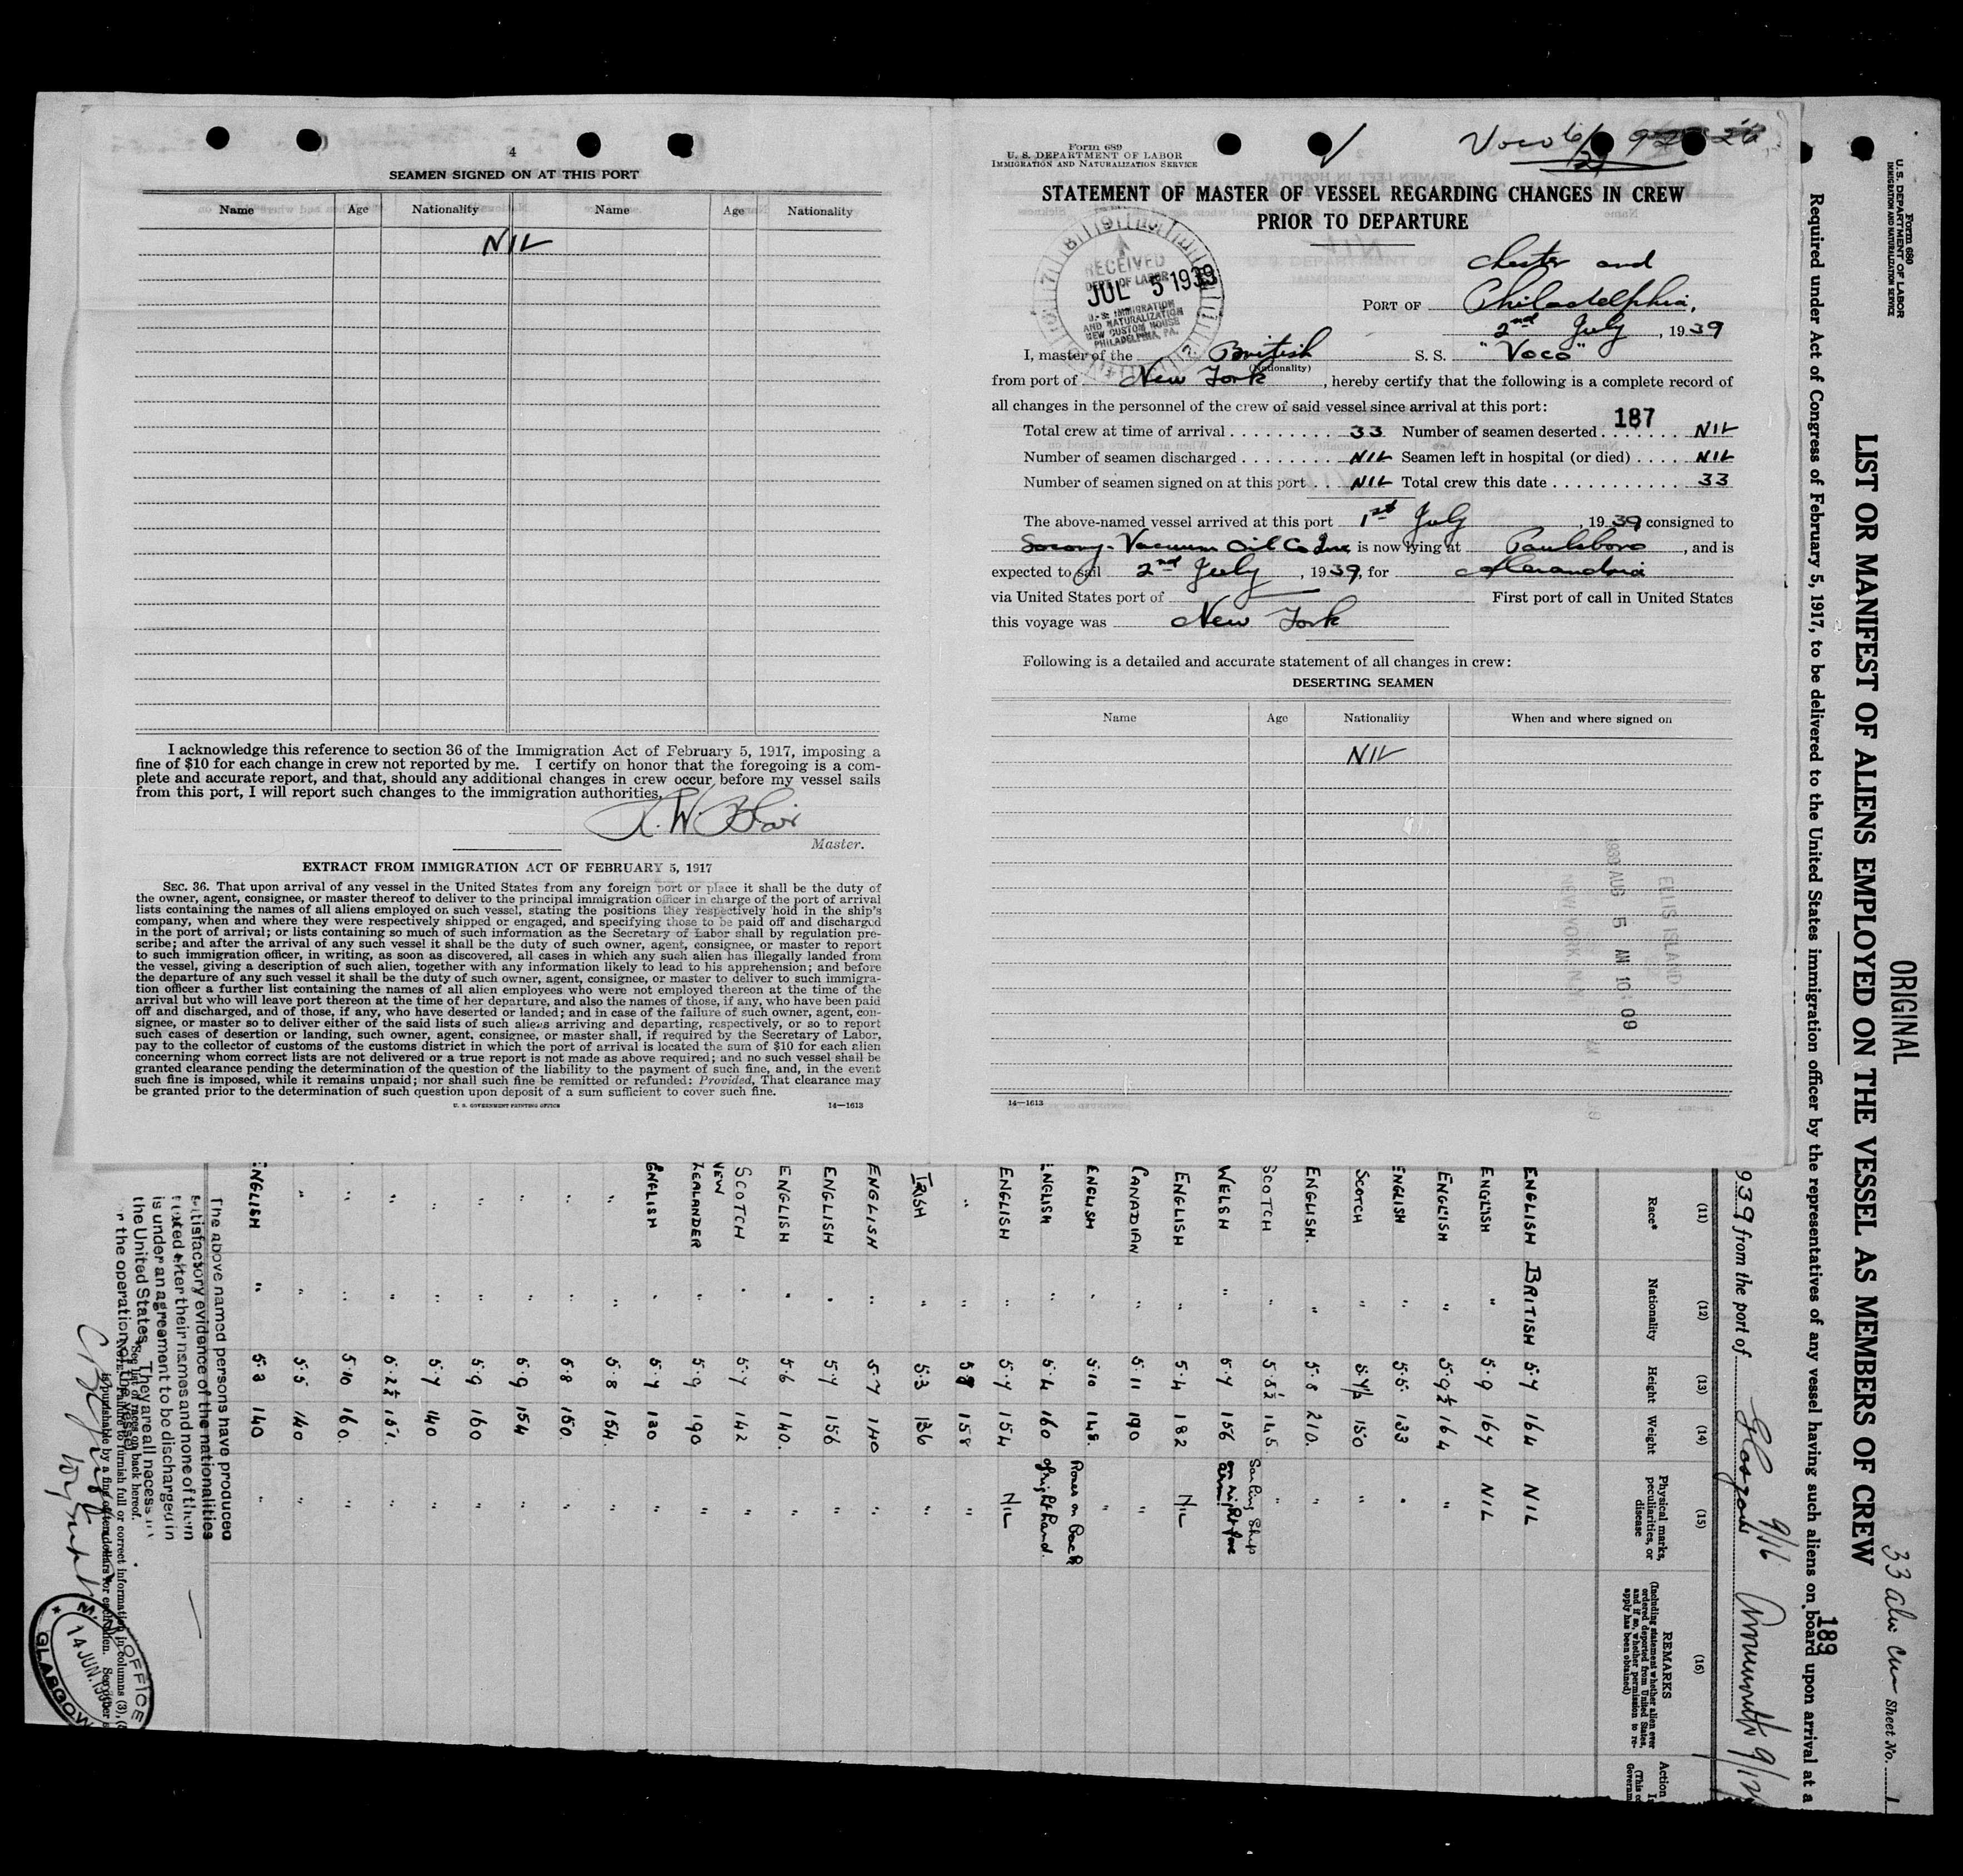 4
SEAMEN SIGNED ON AT THIS PORT
Name Age Nationality Name Age Nationality
NIL
I acknowledge this reference to section 36 of the Immigration Act of February 5, 1917, imposing a
fine of $10 for each change in crew not reported by me. I certify on honor that the foregoing is a com-
plete and accurate report, and that, should any additional changes in crew occur before my vessel sails
from this port, I will report such changes to the immigration authorities.
Master.
EXTRACT FROM IMMIGRATION ACT OF FEBRUARY 5, 1917
SEC. 36. That upon arrival of any vessel in the United States from any foreign port or place it shall be the duty of
the owner, agent, consignee, or master thereof to deliver to the principal immigration officer in charge of the port of arrival
lists containing the names of all aliens employed on such vessel, stating the positions they respectively hold in the ship's
company, when and where they were respectively shipped or engaged, and specifying those to be paid off and discharged
in the port of arrival; or lists containing so much of such information as the Secretary of Labor shall by regulation pre-
scribe; and after the arrival of any such vessel it shall be the duty of such owner, agent, consignee, or master to report
to such immigration officer, in writing, as soon as discovered, all cases in which any such alien has illegally landed from
the vessel, giving a description of such alien, together with any information likely to lead to his apprehension; and before
the departure of any such vessel it shall be the duty of such owner, agent, consignee, or master to deliver to such immigra-
tion officer a further list containing the names of all alien employees who were not employed thereon at the time of the
arrival but who will leave port thereon at the time of her departure, and also the names of those, if any, who have been paid
off and discharged, and of those, if any, who have deserted or landed; and in case of the failure of such owner, agent, con-
signee, or master so to deliver either of the said lists of such aliens arriving and departing, respectively, or so to report
such cases of desertion or landing, such owner, agent, consignee, or master shall, if required by the Secretary of Labor,
pay to the collector of customs of the customs district in which the port of arrival is located the sum of $10 for each alien
concerning whom correct lists are not delivered or a true report is not made as above required; and no such vessel shall be
granted clearance pending the determination of the question of the liability to the payment of such fine, and, in the event
such fine is imposed, while it remains unpaid; nor shall such fine be remitted or refunded: Provided, That clearance may
be granted prior to the determination of such question upon deposit of a sum sufficient to cover such fine.
U. S. GOVERNMENT PRINTING OFFICE 14—1613
Form 689
U. S. DEPARTMENT OF LABOR
IMMIGRATION AND NATURALIZATION SERVICE
Voco
STATEMENT OF MASTER OF VESSEL REGARDING CHANGES IN CREW
PRIOR TO DEPARTURE
RECEIVED
DEPT. OF LABOR
JUL 5 1939
U. S. IMMIGRATION
AND NATURALIZATION
NEW CUSTOM HOUSE
PHILADELPHIA, PA.
Chester and
PORT OF Philadelphia,
2nd July, 1939
I, master of the British S. S. "Voco"
(Nationality)
from port of New York, hereby certify that the following is a complete record of
all changes in the personnel of the crew of said vessel since arrival at this port:
187
Total crew at time of arrival 33 Number of seamen deserted NIL
Number of seamen discharged NIL Seamen left in hospital (or died) NIL
Number of seamen signed on at this port NIL Total crew this date 33
The above-named vessel arrived at this port 1st July, 1939 consigned to
Socony-Vacuum Oil Co Inc, is now lying at Paulsboro, and is
expected to sail 2nd July, 1939, for Alexandria
via United States port of — First port of call in United States
this voyage was New York
Following is a detailed and accurate statement of all changes in crew:
DESERTING SEAMEN
Name Age Nationality When and where signed on
NIL
ELLIS ISLAND
AUG 5 AM 10:09
14—1613
Form 680
U. S. DEPARTMENT OF LABOR
IMMIGRATION AND NATURALIZATION SERVICE
ORIGINAL
33 Sheet No. 1
LIST OR MANIFEST OF ALIENS EMPLOYED ON THE VESSEL AS MEMBERS OF CREW
189
Required under Act of Congress of February 5, 1917, to be delivered to the United States immigration officer by the representatives of any vessel having such aliens on board upon arrival at a
939 from the port of Glasgow
(11) (12) (13) (14) (15) (16)
Race* Nationality Height Weight Physical marks, peculiarities, or disease
REMARKS
(Including statement whether alien ever
ordered deported from United States,
and if so, whether permission to re-
apply has been obtained)
Action
ENGLISH BRITISH 5·7 164 NIL
ENGLISH " 5·9 164 NIL
ENGLISH " 5·9½ 164 "
ENGLISH " 5·5 133 "
SCOTCH " 5·4½ 150 "
ENGLISH. " 5·8 210. "
SCOTCH " 5·8½ 145. "
WELSH " 5·7 156 Sailing Ship on right fore arm
ENGLISH " 5·4 182 NIL
CANADIAN " 5·11 190 "
ENGLISH " 5·10 148. "
ENGLISH " 5·4 160 Roses on Back of right hand.
ENGLISH " 5·7 154 NIL
" " 5·8 158 "
IRISH " 5·3 136 "
ENGLISH " 5·7 140 "
ENGLISH " 5·7 156 "
ENGLISH " 5·6 140. "
SCOTCH " 5·7 142 "
NEW ZEALANDER " 5·9 190 "
ENGLISH " 5·7 130 "
" " 5·8 154. "
" " 5·8 150. "
" " 5·9 154 "
" " 5·9 160 "
" " 5·7 140 "
" " 5·2½ 151. "
" " 5·10 160. "
" " 5·5 140 "
ENGLISH " 5·3 140 "
The above named persons have produced
satisfactory evidence of the nationalities
noted after their names and none of them
is under an agreement to be discharged in
the United States. They are all necessary
for the operation of the vessel.
*See list of races on back hereof.
OFFICE
14 JUN 1939
GLASGOW